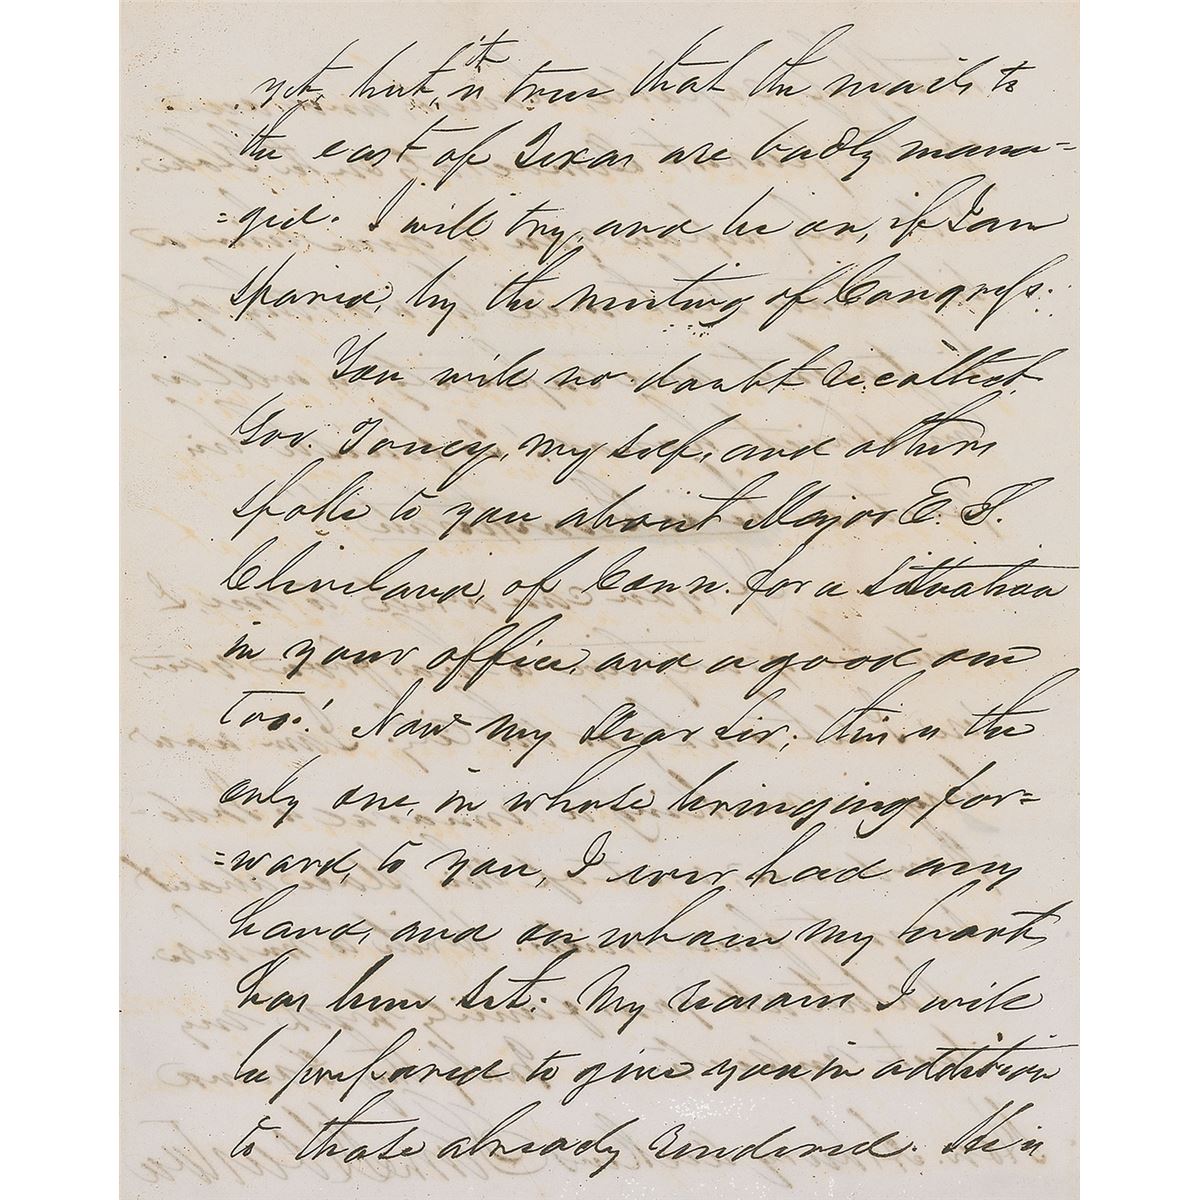 yet, but, it is true that the mails to
the east of Texas are badly mana=
=ged. I will try, and be on, if I am
spared, by the meeting of Congress.
You will no doubt recollect
Gov. Toucey, my self, and others
spoke to you about Major E. S.
Cleveland, of Conn. for a situation
in your office, and a good one
too! Now my Dear Sir, this is the
only one, in whose bringing for=
=ward, to you, I ever had any
hand, and on whom my heart
has been set. My reasons I will
be prepared to give you in addition
to those already rendered. He is